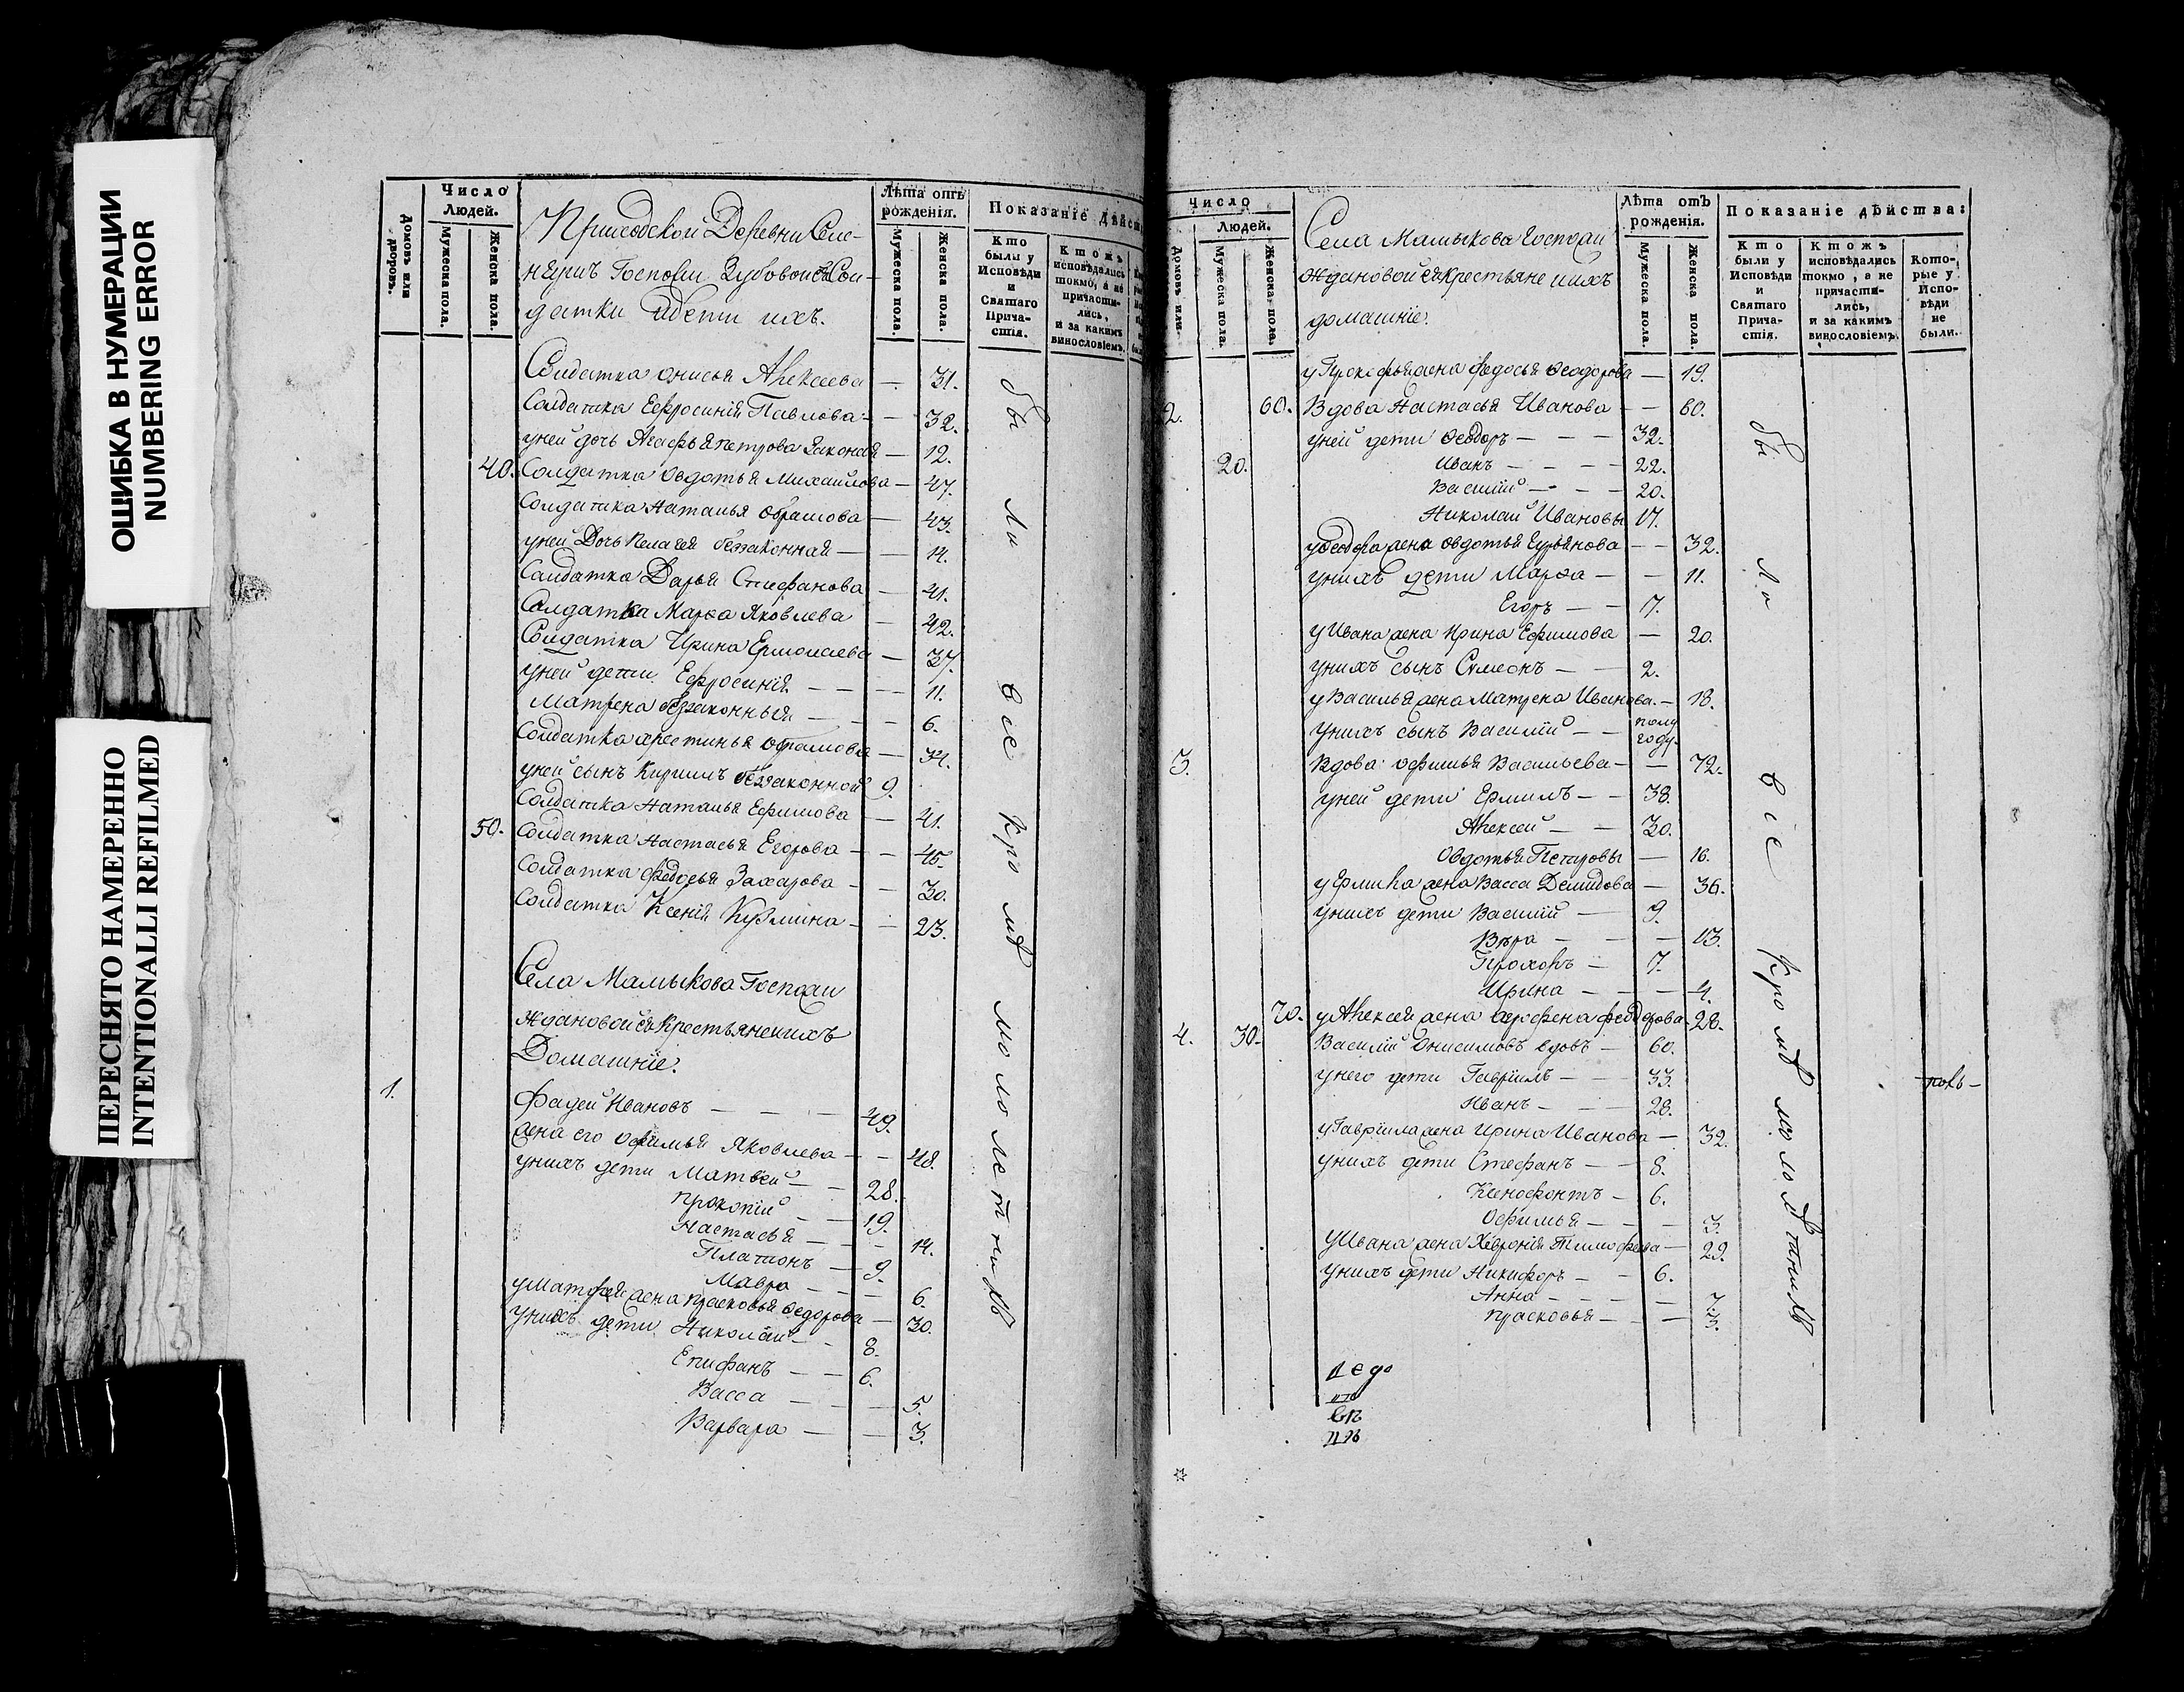 ОШИБКА В НУМЕРАЦИИ
NUMBERING ERROR
ПЕРЕСНЯТО НАМЕРЕННО
INTENTIONALLI REFILMED
Домовъ или дворовъ.
Число Людей.
Мужеска пола.
Женска пола.
Приходской Деревни
Госпожи Зубовой
датки и дети ихъ.
Лѣта отъ рожденія.
Мужеска пола.
Женска пола.
Показаніе дѣйст
Кто были у Исповѣди и Святаго Причастія.
Ктожъ исповѣдались токмо, а не причастились, и за какимъ винословіемъ.
Солдатка онисья Алексеева — 31.
Солдатка Ефросинія Павлова — 32.
уней дочь Агафья петрова законая — 12.
40. Солдатка Овдотья Михайлова — 47.
Солдатка Наталья Абрамова — 43.
уней Дочь Пелагея беззаконная — 14.
Солдатка Дарья Стефанова — 41.
Солдатка Марѳа Яковлева — 42.
Солдатка Ирина Ермолаева — 37.
уней дети Ефросинія — — 11.
Матрена беззаконныя — — 6.
Солдатка христинья — 34.
уней сынъ Кирилъ беззаконной 9.
Солдатка Наталья Ефимова — 41.
50. Солдатка Настасья Егорова — 45.
Солдатка Федосья Захарова — 30.
Солдатка Ксенія Кузмина — 23.
Села Мамыкова Госпожи
Ждановой крестьяне ихъ
Домашніе.
1. Фадей Ивановъ — 49.
жена его офимья Яковлева — 48.
унихъ дети Матвей — 28.
прокопій — 19.
Настасья — 14.
Платонъ — 9.
Мавра — 6.
уматфея жена прасковья Федорова — 30.
унихъ дети Николай — 8.
Епифанъ — 6.
Васса — 5.
Варвара — 3.
бы
ли
все
кромѣ
мололетнихъ
Число
Домовъ или
Людей.
Мужеска пола.
Женска пола.
Села Мамыкова Госпожи
Ждановой крестьяне ихъ
домашніе.
Лѣта отъ рожденія.
Мужеска пола.
Женска пола.
Показаніе дѣйства:
Кто были у Исповѣди и Святаго Причастія.
Ктожъ исповѣдались токмо, а не причастились, и за какимъ винословіемъ.
Которые у Исповѣди не были.
у Прокофья жена федосья Ѳеодорова — 19.
2. 60. Вдова Настасья Иванова — 60.
уней дети Ѳеодоръ — 32.
20. Иванъ — 22.
Василій — 20.
Николай Ивановы 17.
у Ѳеодора жена Овдотья Гурьянова — 32.
унихъ дети Марѳа — 11.
Егоръ — 17.
у Ивана жена Ирина Ефимова — 20.
унихъ сынъ Симеонъ — 2.
у Василья жена Матрена Иванова — 18.
унихъ сынъ Василій — полугоду.
3. Вдова офимья Васильева — 72.
уней дети Ермилъ — 38.
Алексей — 30.
Овдотья Петровы — 16.
у Ермила жена Васса Демидова — 36.
унихъ дети Василій — 9.
Вѣра — 13.
Прохоръ — 7.
Ирина — 4.
70. у Алексея жена Аграфена федорова — 28.
4. 30. Василій Онисимовъ вдовъ — 60.
унего дети Гаврилъ — 33.
Иванъ — 28.
у Гаврила жена Ирина Иванова — 32.
унихъ дети Стефанъ — 8.
Ксенофонтъ — 6.
Офимья — 3.
У Ивана жена Хеврония Тимофеева — 29.
унихъ дети Никифоръ — 6.
Анна — 7.
прасковья — 3.
бы
ли
все
кромѣ
малолѣтнихъ